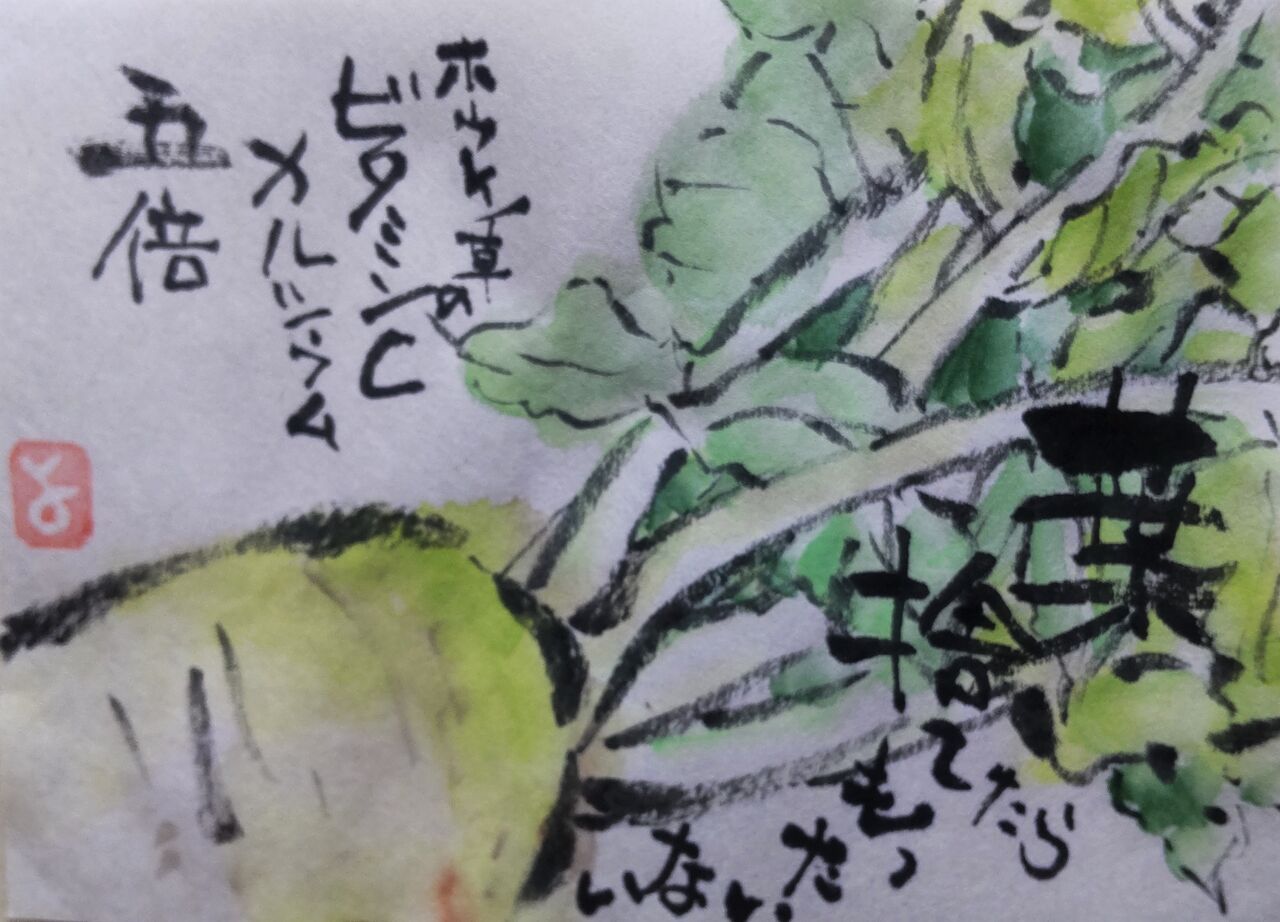 葉
捨てたら
もっ
たい
ない
ホウレン草の
ビタミンC
カルシウム
五倍